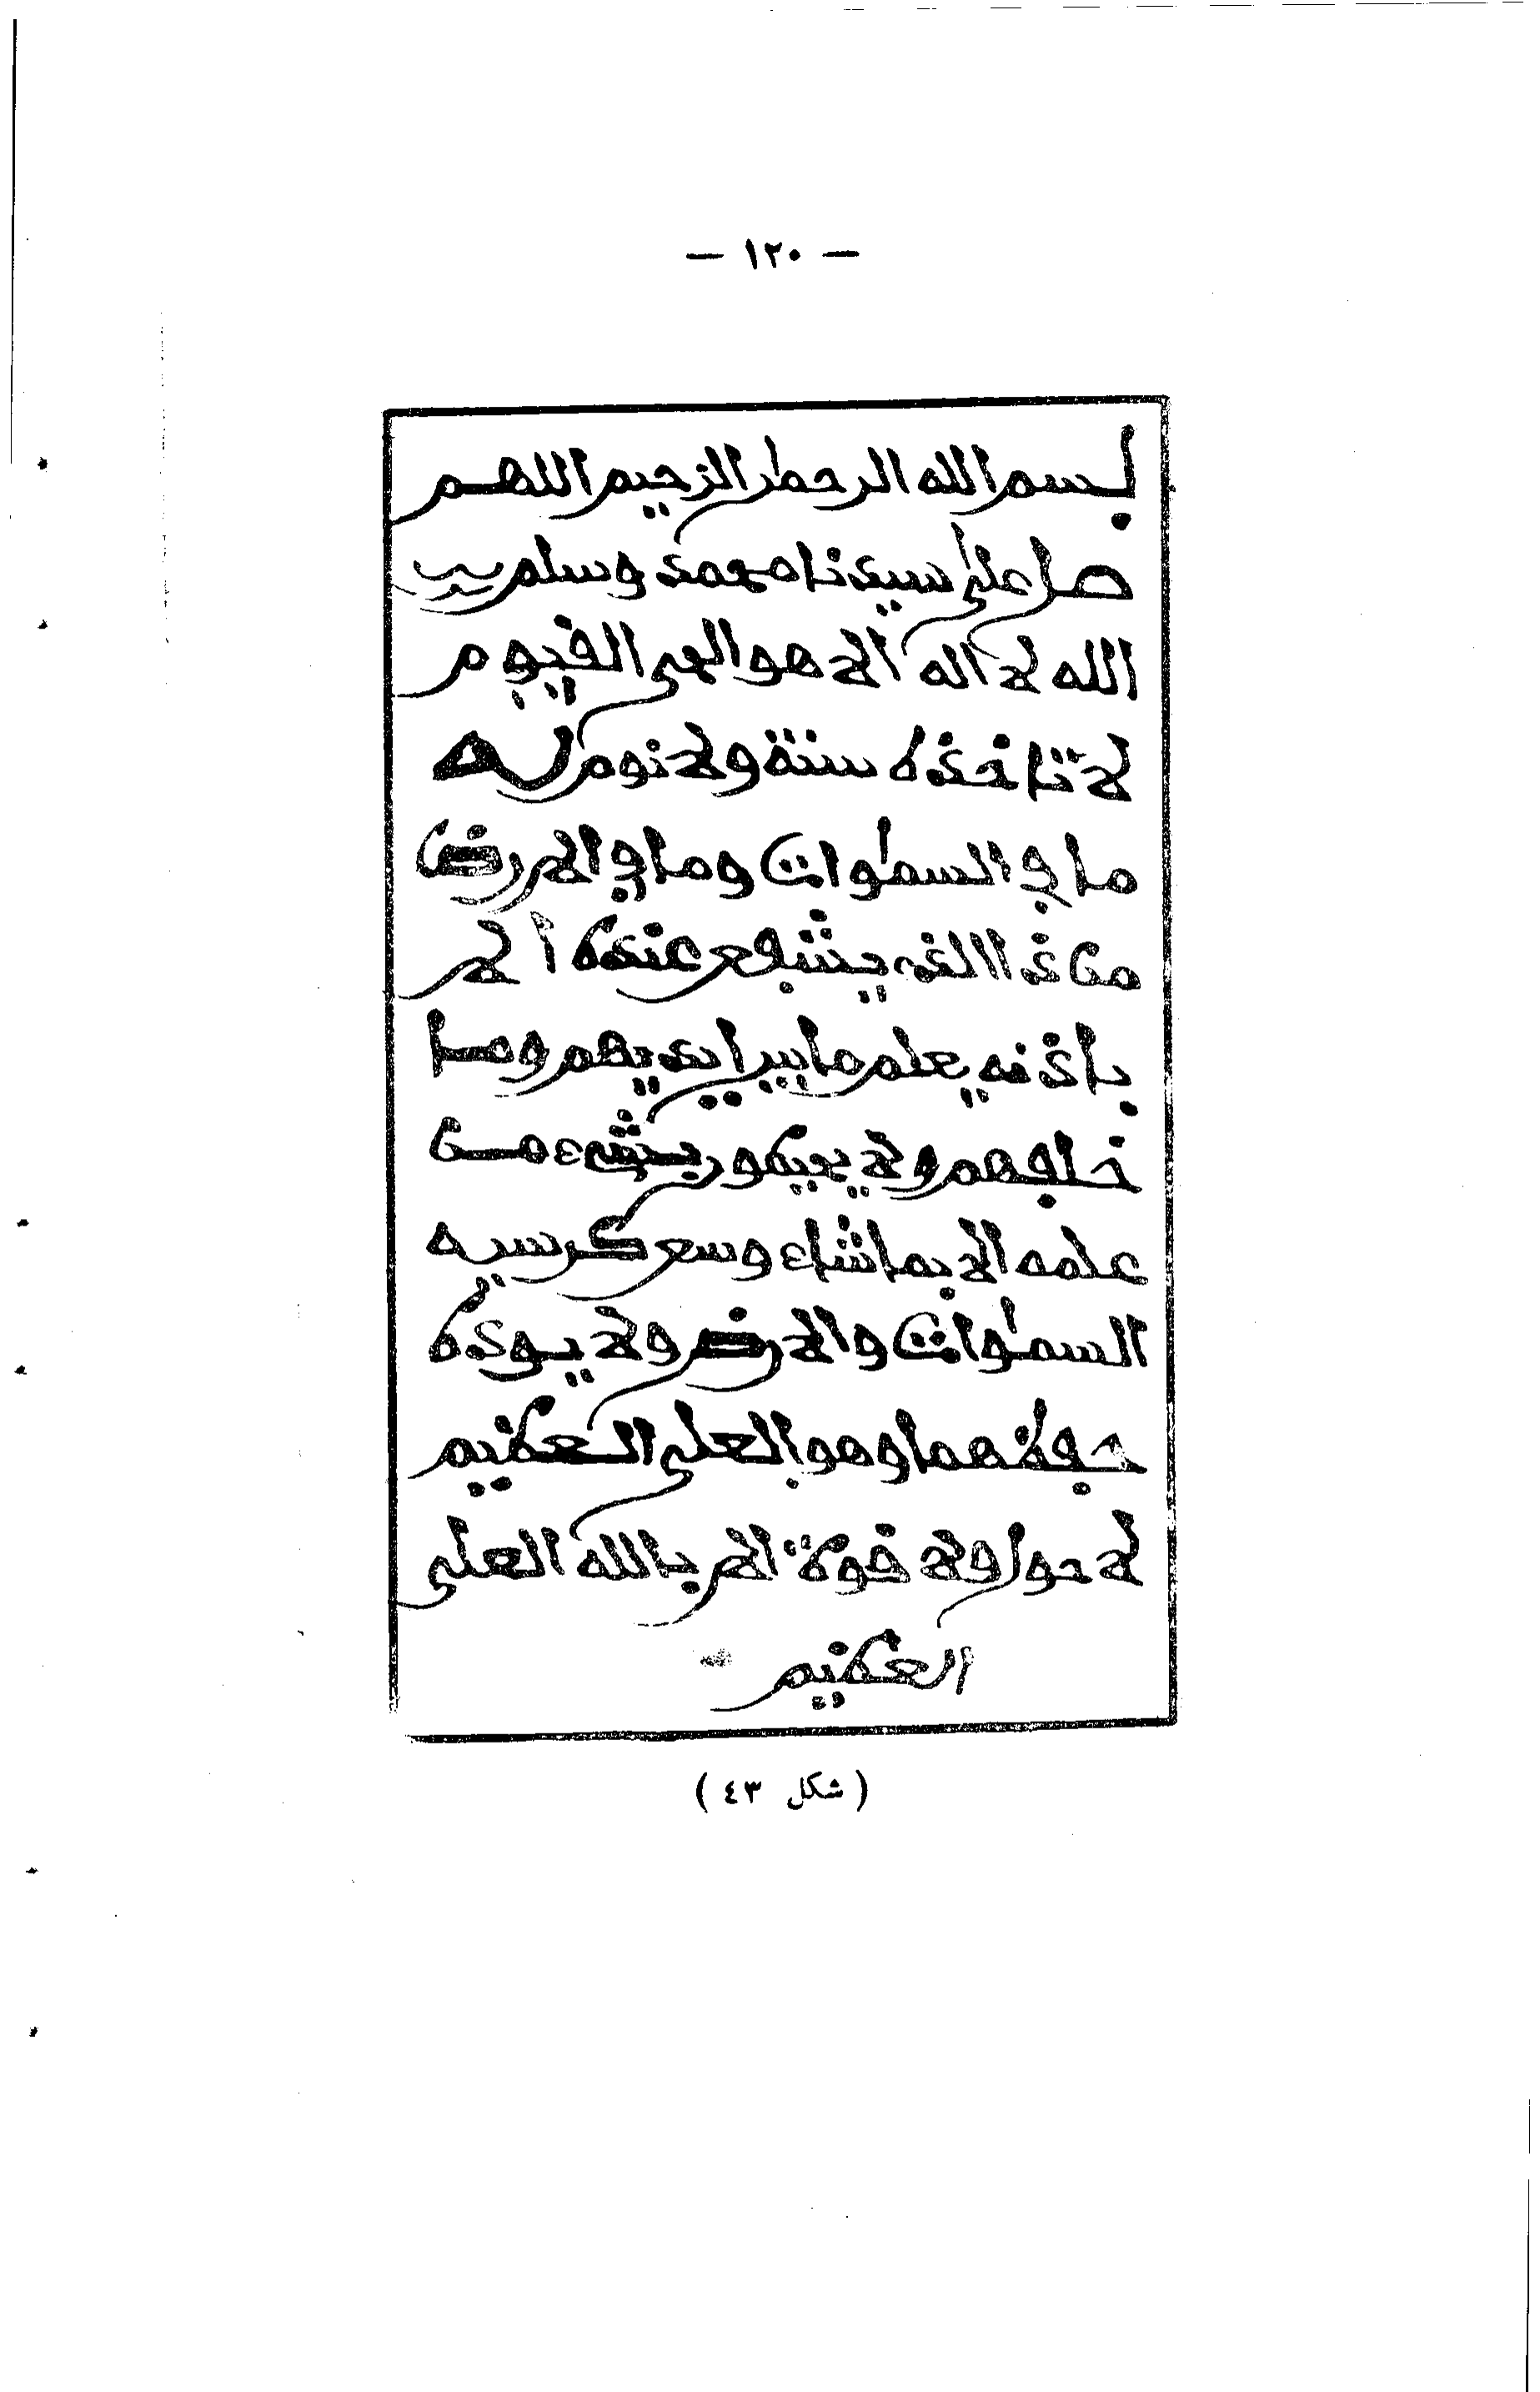 — ١٢٠ —
بسم الله الرحمٰن الرحيم اللهم
صل على سيدنا محمد وسلم
الله لا اله الا هو الحي القيوم
لا تاخذه سنة ولا نوم له
ما في السمٰوات وما في الارض
من ذا الذي يشفع عنده الا
باذنه يعلم ما بين ايديهم وما
خلفهم ولا يحيطون بشيء من
علمه الا بما شاء وسع كرسيه
السمٰوات والارض ولا يوده
حفظهما وهو العلي العظيم
لا حول ولا قوة الا بالله العلي
العظيم
( شكل ٤٣ )